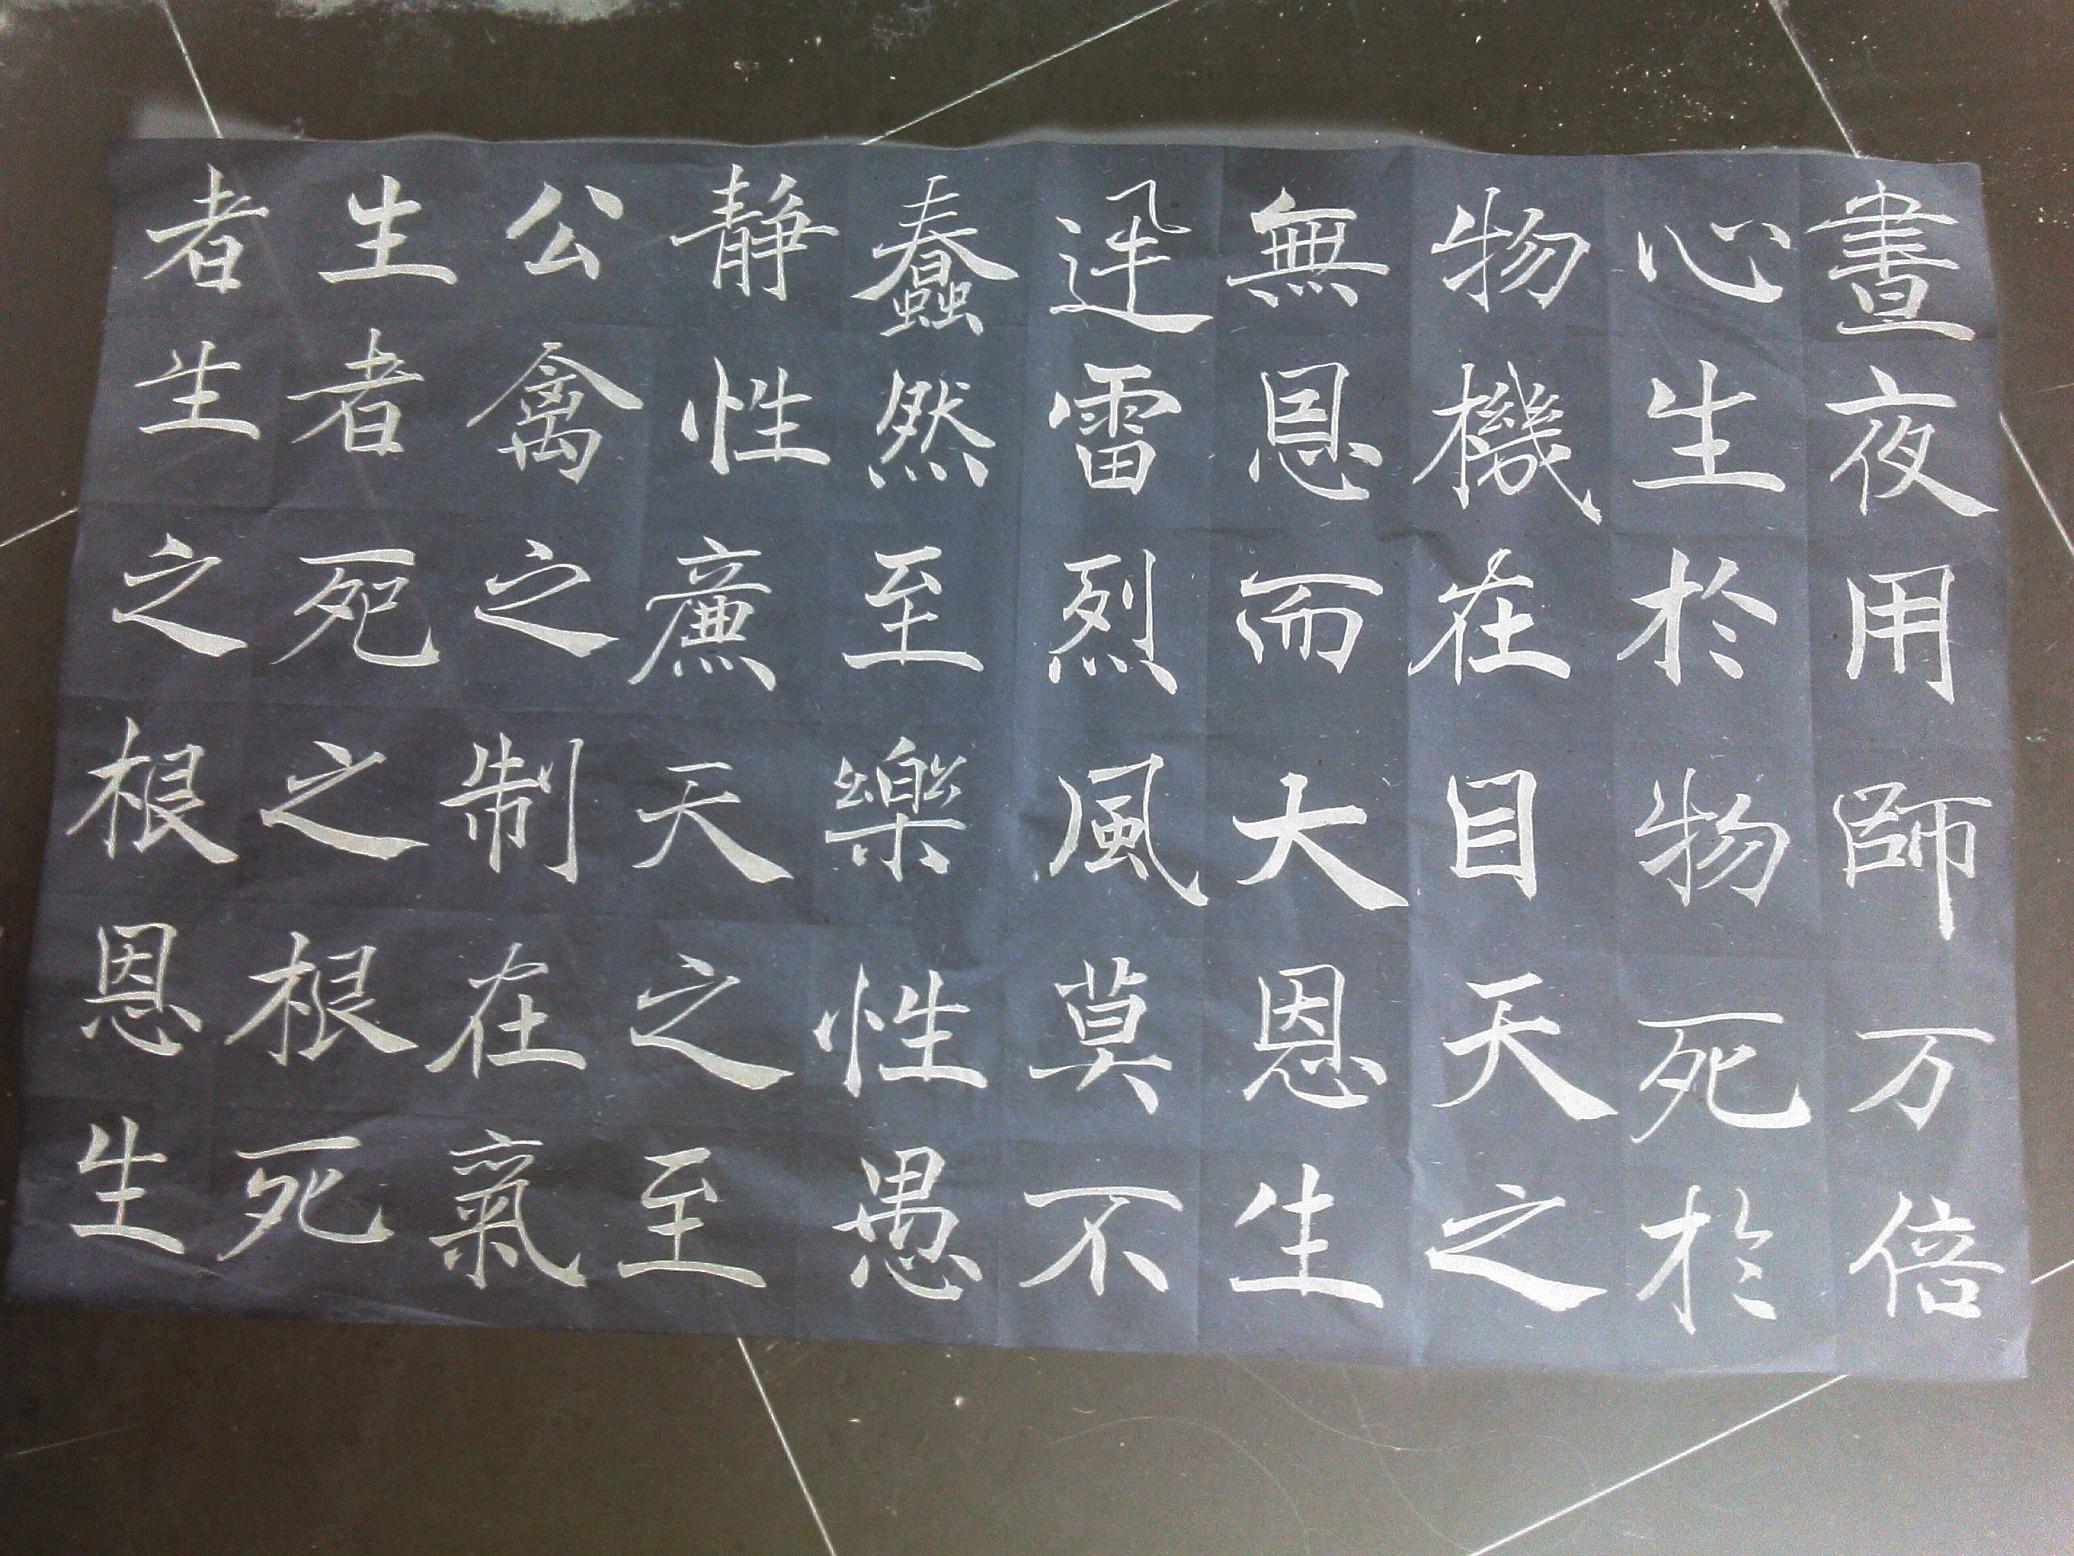 晝夜用師万倍
心生於物死於
物機在目天之
無恩而大恩生
迅雷烈風莫不
蠢然至樂性愚
静性廉天之至
公禽之制在氣
生者死之根死
者生之根恩生